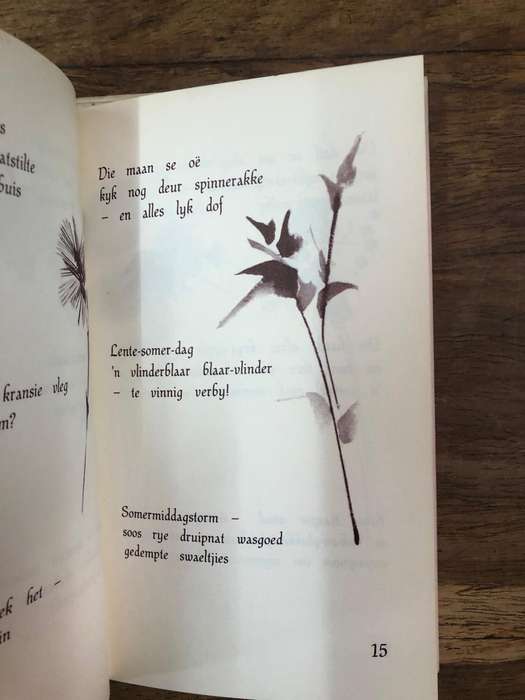 s
atstilte
buis
kransie vleg
m?
ek het –
in
Die maan se oë
kyk nog deur spinnerakke
– en alles lyk dof
Lente-somer-dag
'n vlinderblaar blaar-vlinder
– te vinnig verby!
Somermiddagstorm –
soos rye druipnat wasgoed
gedempte swaeltjies
15